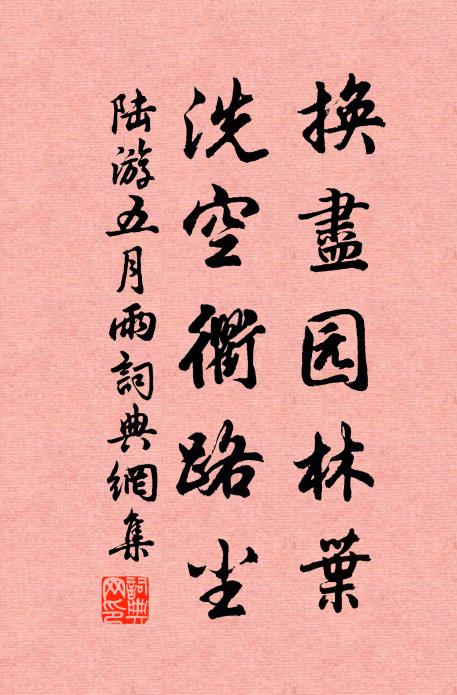 換盡园林葉
洗空衢路尘
陆游五月雨詞典網集
詞典网印